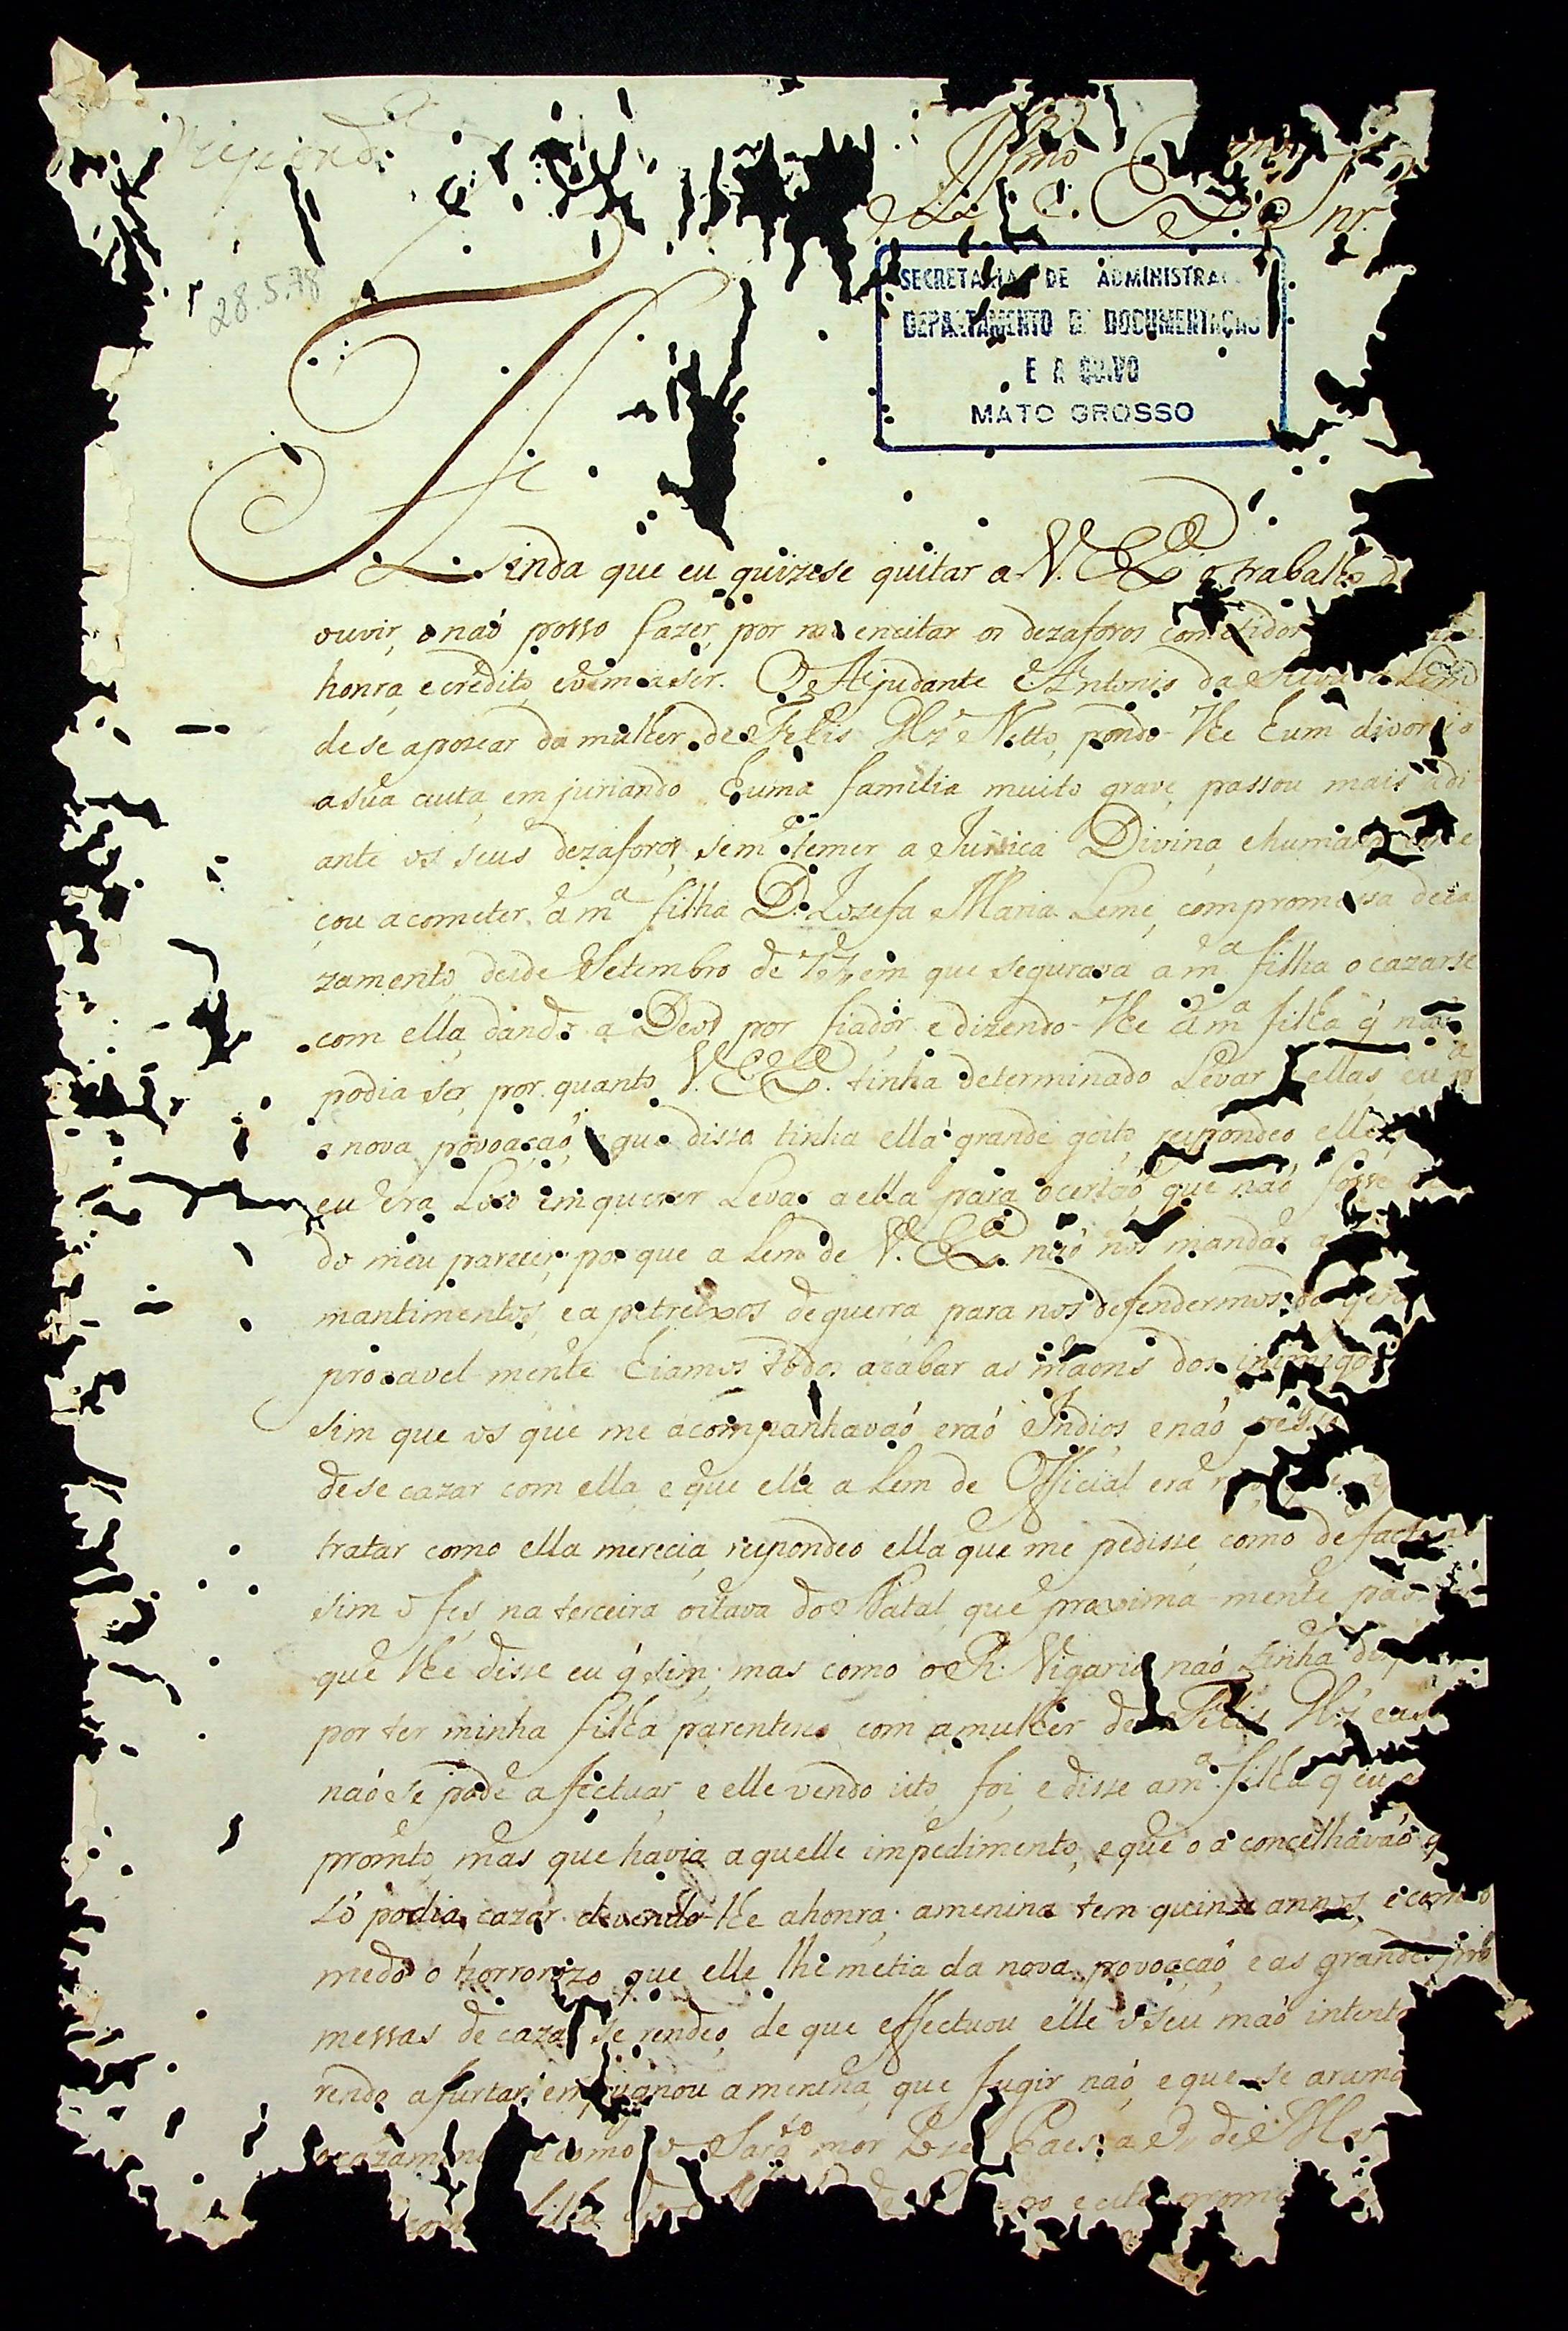 Respond.ᵈᵃ
Illmo
Snr.
28.5.78
SECRETARIA DE ADMINISTRAÇ
DEPARTAMENTO DE DOCUMENTAÇÃO
E ARQUIVO
MATO GROSSO
Ainda que eu quizese quitar a V. Exª o trabalho d
ouvir, o naó posso fazer, por me encitar os dezaforos cometidos
honra, e credito, evem a ser. O Ajudante Antonio da Silva Lem
de se aposear da mulher de Felis Glz' Netto, pondo-lhe hum divorcio
a sua custa, em juriando huma familia muito grave, passou mais adi
ante os seus dezaforos, sem temer a Justica Divina, e humana, come
çou acometer á mª filha D. Jozefa Maria Leme, com promessa de ca
zamento, desde Setembro de em que segurava a mª filha o cazarse
com ella, dando a Deos por fiador, e dizendo-lhe á mª filha q' naó
podia ser, por quanto V. Exª. tinha determinado Levar ellas, eu pª
a nova povoaçaó, que disso tinha ella grande gosto, respondeo elle q
eu era Loco em querer Levar a ella para o certaó, que naó fosse
do meu parecer; por que a Lem de V. Exª. naó nos mandar a
mantimentos, e a petreixos de guerra, para nos defendermos do gen
provavel mente hiamos todos acabar as maons dos inimigos
sim que os que me acompanhavaó eraó Indios, e naó pess
de se cazar com ella, e que elle a Lem de Official era
tratar como ella merecia, respondeo ella que me pedisse, como de facto as
sim o fes, na terceira oitava do Natal, que proxima-mente passou
que lhe disse eu q' sim; mas como o R. Vigario naó tinha disp
por ter minha filha parentesco com a mulher de Felis Glz' e as
naó se pode a fectuar, e elle vendo isto, foi, e disse a mª. filha q' eu e
promto, mas que havia aquelle impedimento, e que o a concelhavaó q
só podia cazar devendo-lhe a honra; a menina tem quinze annos, e com o
medo o horrorozo, que elle lhe metia da nova povoaçaó, e as grandes pro
messas de cazar se rendeo, de que effectuou elle o seu máo intento
rendo a furtar, em ganou a menina, que fugir naó, e que se aruma
o cazamento como o Sargto mor Jose Paes a D. de M
filha